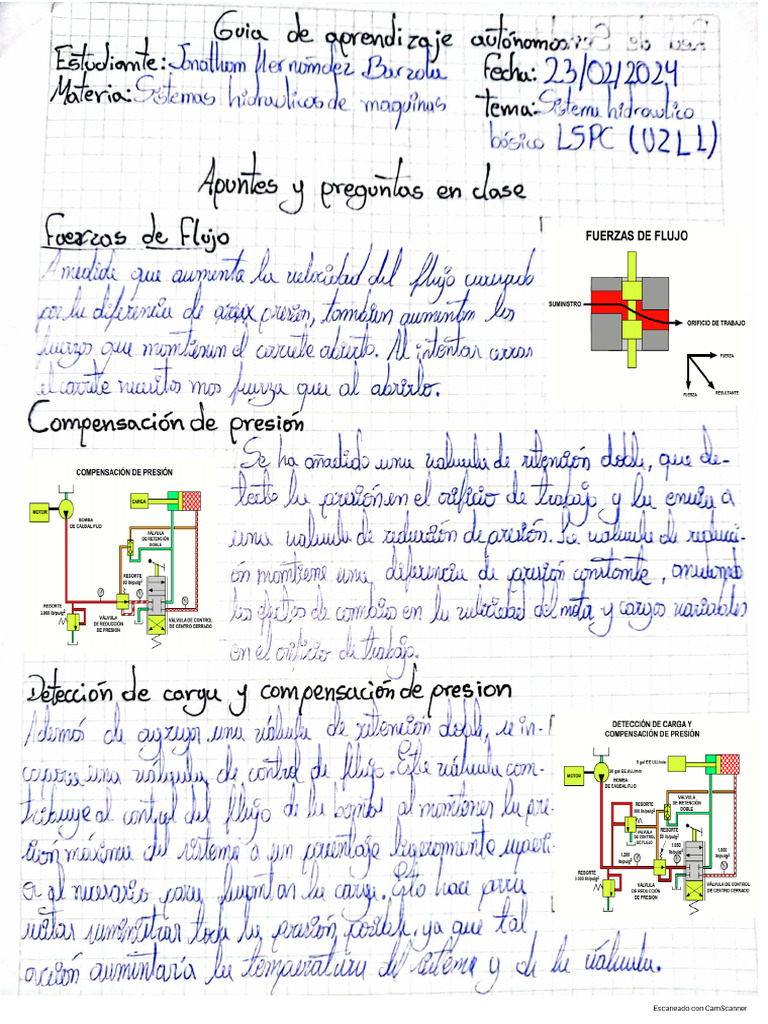 Guia de aprendizaje autónomo
Estudiante: Jonathan Hernández Barzola Fecha: 23/02/2024
Materia: Sistemas hidraulicos de maquinas Tema: Sistema hidraulico
básico LSPC (U2L1)
Apuntes y preguntas en clase
Fuerzas de Flujo
A medida que aumenta la velocidad del flujo causado
por la diferencia de presion, tambien aumentan las
fuerzas que mantienen el carrete abierto. Al intentar cerrar
el carrete necesitamos mas fuerza que al abrirlo.
FUERZAS DE FLUJO
SUMINISTRO
ORIFICIO DE TRABAJO
FUERZA
FUERZA
RESULTANTE
Compensación de presión
COMPENSACIÓN DE PRESIÓN
MOTOR
BOMBA
DE CAUDAL FIJO
CARGA
VÁLVULA
DE RETENCIÓN
DOBLE
RESORTE
RESORTE
VÁLVULA
DE REDUCCIÓN
DE PRESION
VÁLVULA DE CONTROL
DE CENTRO CERRADO
Se ha añadido una valvula de retención doble, que de-
tecta la presión en el orificio de trabajo y la envia a
una valvula de reducción de presión. La valvula de reducci-
ón mantiene una diferencia de presión constante, anulando
los efectos de cambios en la velocidad del mota y cargas variables
en el orificio de trabajo.
Detección de carga y compensación de presion
Ademas de agregar una válvula de retención doble, se in-
corpora una válvula de control de flujo. Esta válvula con-
tribuye al control del flujo de la bomba al mantener la pre-
sion máxima del sistema a un porcentaje ligeramente superi-
or al necesario para levantar la carga. Esto hace
suministrar toda la presión posible, ya que tal
acción aumentaría la temperatura del sistema y de la válvula.
DETECCIÓN DE CARGA Y
COMPENSACIÓN DE PRESIÓN
MOTOR
BOMBA
DE CAUDAL FIJO
RESORTE
VÁLVULA
DE RETENCIÓN
DOBLE
VÁLVULA
DE CONTROL
DE FLUJO
RESORTE
RESORTE
VÁLVULA
DE REDUCCIÓN
DE PRESIÓN
VÁLVULA DE CONTROL
DE CENTRO CERRADO
Escaneado con CamScanner